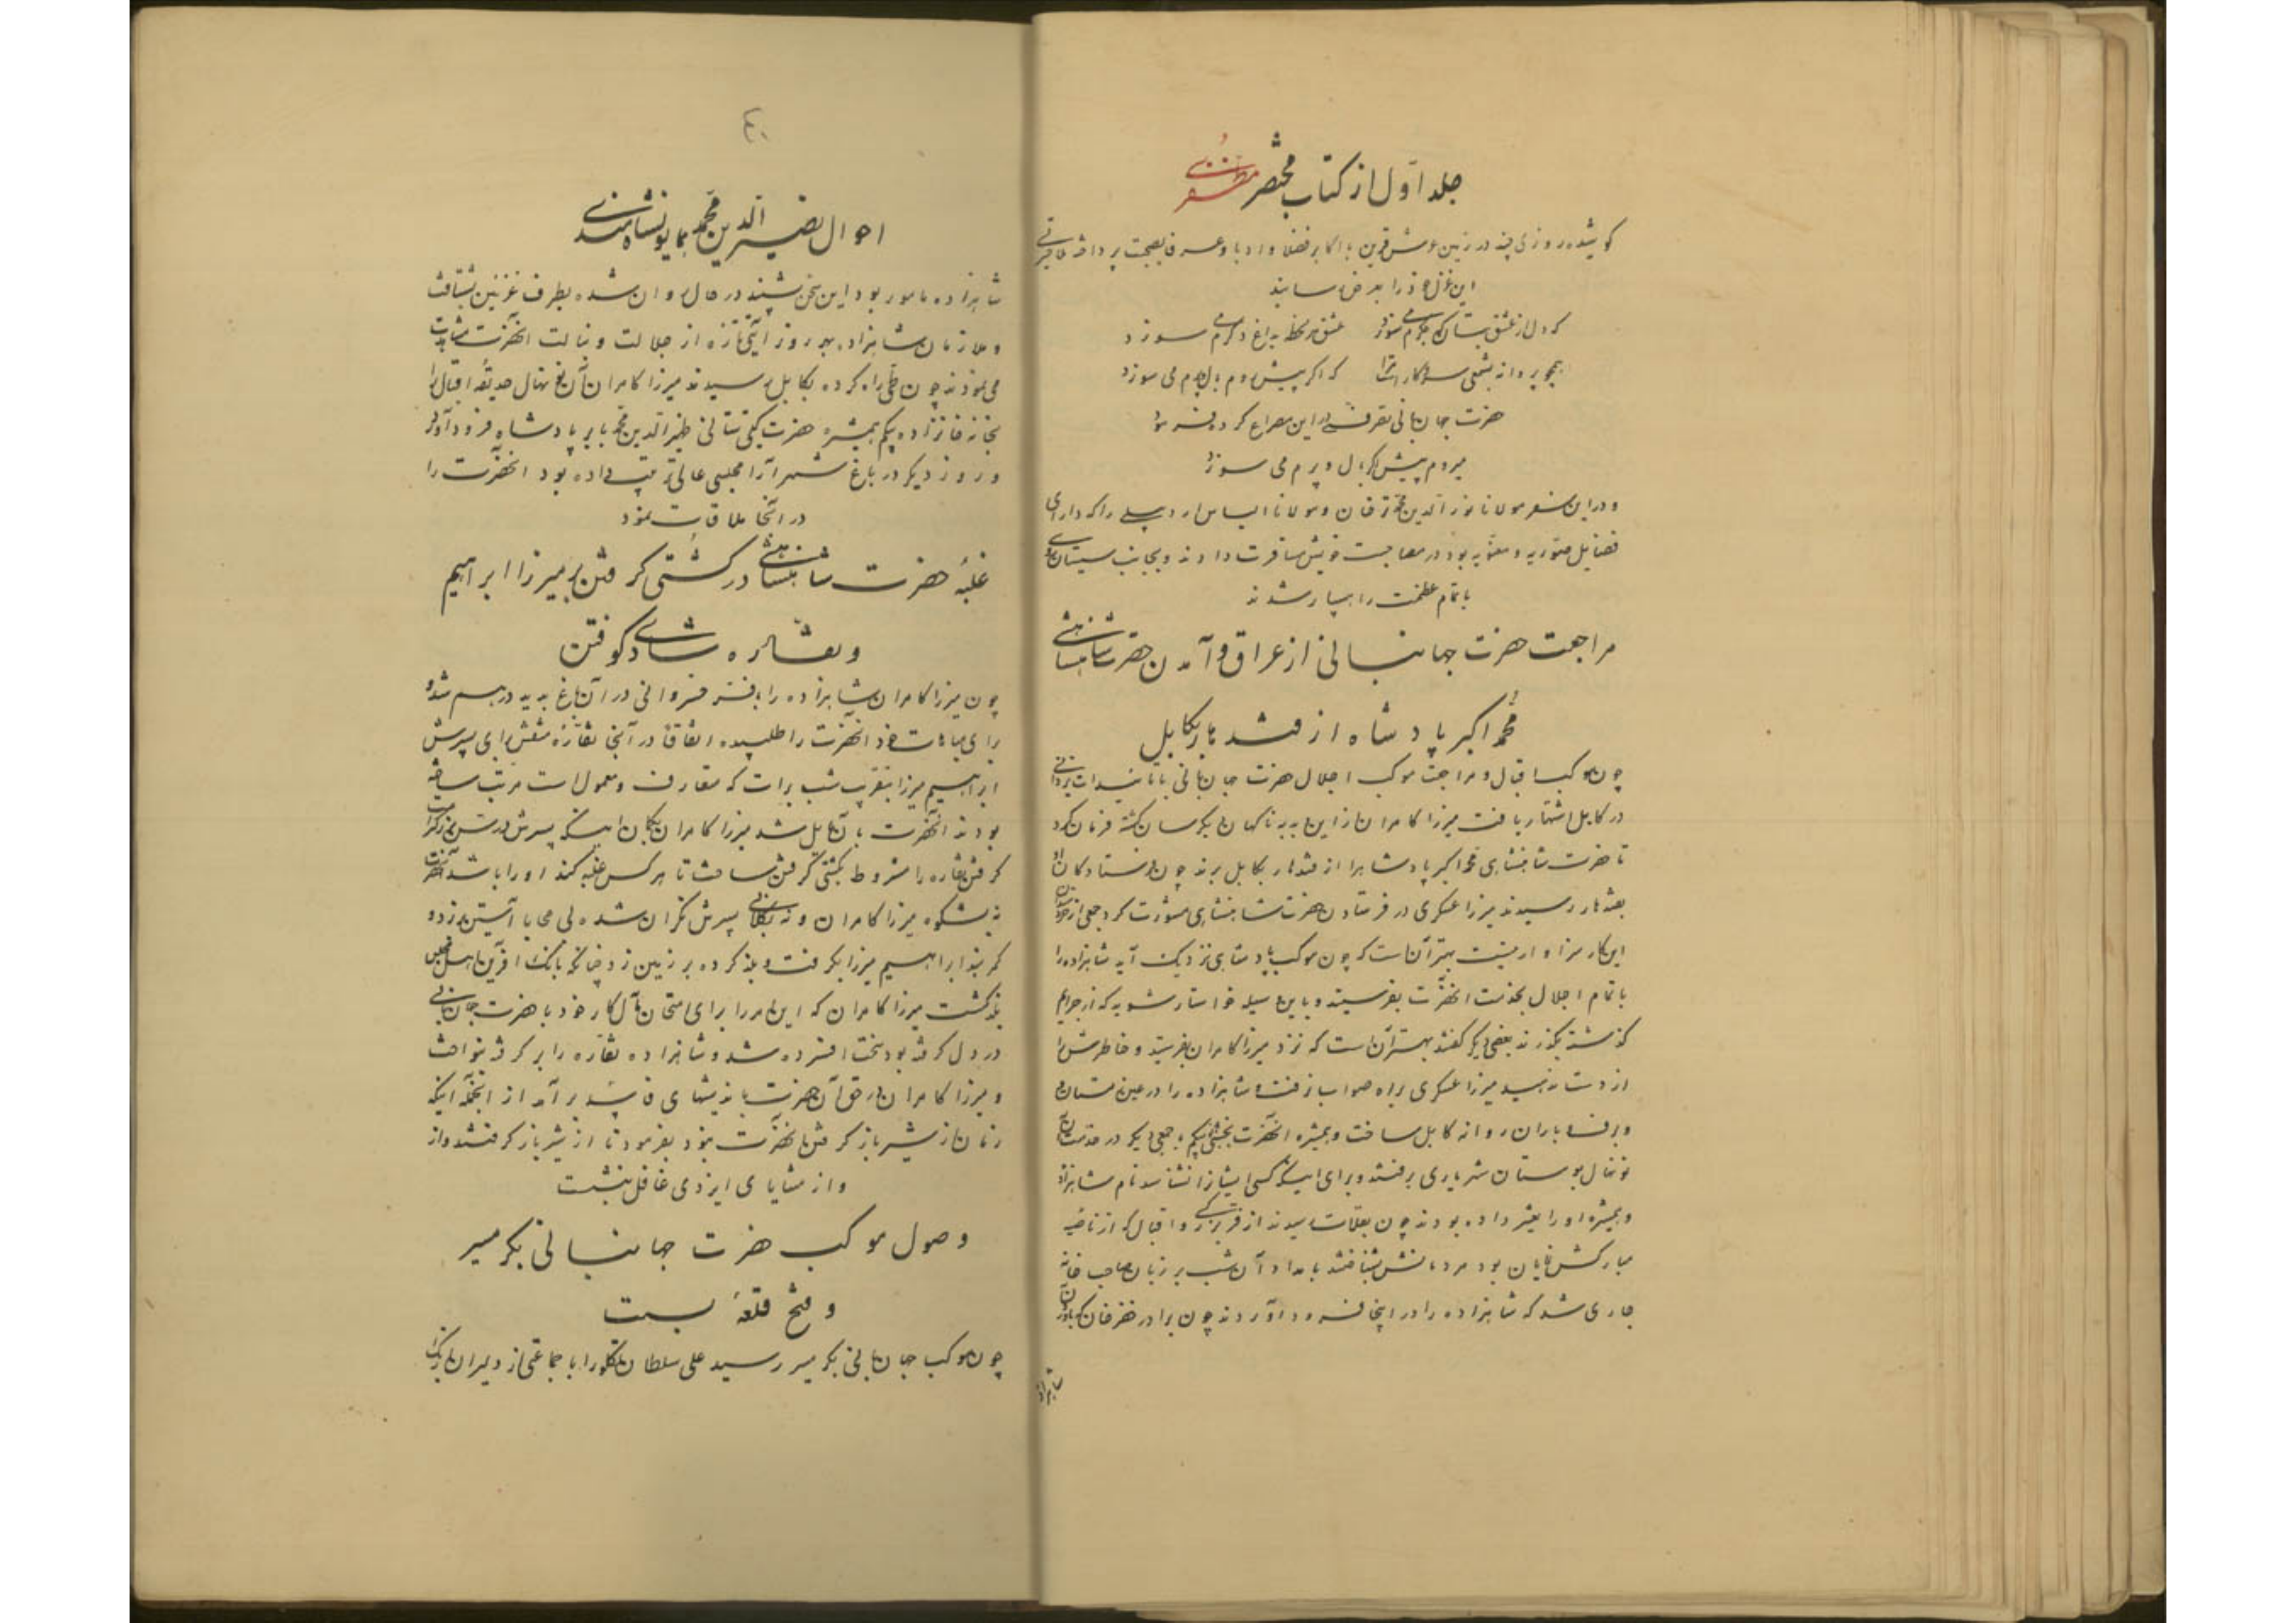 جلد اول از کتاب مختصر مظفری
کوشیده روزی چند در زمین عرش قرین با اکابر فضلا و ادبا و عرفا بصحبت پرداخته
این غزل خود را بعرض رسانید
که دل از عشق بتان که جگرم می سوزد عشق هر لحظه بداغ دگرم می سوزد
همچو پروانه بشمعی سر و کار است مرا که اگر پیش روم بال و پرم می سوزد
حضرت جهانبانی تصرفی در این مصراع کرده فرمود
میروم پیش اگر بال و پرم می سوزد
و در این سفر مولانا نورالدین محمد ترخان و مولانا الیاس اردبیلی را که دارای
فضایل صوریه و معنویه بود در مصاحبت خویش مسافرت دادند و بجانب سیستان
با تمام عظمت راهسپار شدند
مراجعت حضرت جهانبانی از عراق و آمدن حضرت شاهنشاهی
محمد اکبر پادشاه از قندهار بکابل
چون موکب اقبال و مراجعت موکب اجلال حضرت جهانبانی با تاییدات یزدانی
در کابل اشتهار یافت میرزا کامران از این ناگهان هراسان گشته فرمان کرد
تا حضرت شاهنشاهی محمد اکبر پادشاه را از قندهار بکابل برند چون فرستادگان او
بقندهار رسیدند میرزا عسکری در فرستادن حضرت شاهنشاهی مشورت کرد جمعی از
این کار سزاوار نیست بهتر آن است که چون موکب پادشاهی نزدیک آید شاهزاده را
با تمام اجلال بخدمت آنحضرت بفرستید و باین وسیله خواستار شوید که از جرایم
گذشته بگذرند بعضی دیگر گفتند بهتر آن است که نزد میرزا کامران بفرستید و خاطرش را
از دست ندهید میرزا عسکری براه صواب نرفت و شاهزاده را در عین زمستان
و برف و باران روانه کابل ساخت و همشیره آنحضرت بخشی بیگم با جمعی دیگر در خدمت آن
نونهال بوستان شهریاری برفتند و برای اینکه کسی ایشان را نشناسد نام شاهزاده
و همشیره او را تغییر داده بودند چون بقلات رسیدند از فر بزرگی و اقبال که از ناصیه
مبارکش نمایان بود مردمانش بشناختند بامداد آن شب بر زبان صاحب خانه
جاری شد که شاهزاده را در اینجا فرود آوردند چون برادر خضرخان که با آن
شاهزاده
٤٠
احوال نصیرالدین محمد همایونشاه هندی
شاهزاده مامور بود این سخن بشنید در حال روان شده بطرف غزنین بشتافت
و ملازمان شاهزاده هر روز آیتی تازه از جلالت و نبالت آنحضرت مشاهدت
می نمودند چون طی راه کرده بکابل رسیدند میرزا کامران آن نونهال حدیقه اقبال را
بخانه خانزاده بیگم همشیره حضرت گیتی ستانی ظهیرالدین محمد بابر پادشاه فرود آورد
و روز دیگر در باغ شهرآرا مجلسی عالی ترتیب داده بود آنحضرت را
در آنجا ملاقات نمود
غلبهٔ حضرت شاهنشاهی در کشتی گرفتن بر میرزا ابراهیم
و نقاره شادی کوفتن
چون میرزا کامران شاهزاده را با فر خسروانی در آن باغ بدید درهم شد و
برای مباهات خود آنحضرت را طلبیده اتفاقا در آنجا نقاره منقش برای پسرش
ابراهیم میرزا بتقریب شب برات که متعارف و معمول است مرتب ساخته
بودند آنحضرت بآن مایل شد میرزا کامران بگمان اینکه پسرش بزرگتر است
گرفتن نقاره را مشروط بکشتی گرفتن ساخت تا هر کس غلبه کند او را باشد آنحضرت
نه بشکوه میرزا کامران و نه بکلانی پسرش نگران شده بی محابا آستین برزد و
کمربند ابراهیم میرزا بگرفت و بلند کرده بر زمین زد چنانکه بانگ آفرین از اهل مجلس
بلند گشت میرزا کامران که این امر را برای امتحان مآل کار خود با حضرت جهانبانی
در دل گرفته بود سخت افسرده شد و شاهزاده نقاره را بر گرفته بنواخت
و میرزا کامران در حق آن حضرت باندیشهای فاسد برآمد از آنجمله اینکه
زمان از شیر باز گرفتن آنحضرت نبود بفرمود تا از شیر باز گرفتند و از
و از مشایای ایزدی غافل بنشست
وصول موکب حضرت جهانبانی بگرمسیر
و فتح قلعهٔ بست
چون موکب جهانبانی بگرمسیر رسید علی سلطان تکلو را با جماعتی از دلیران